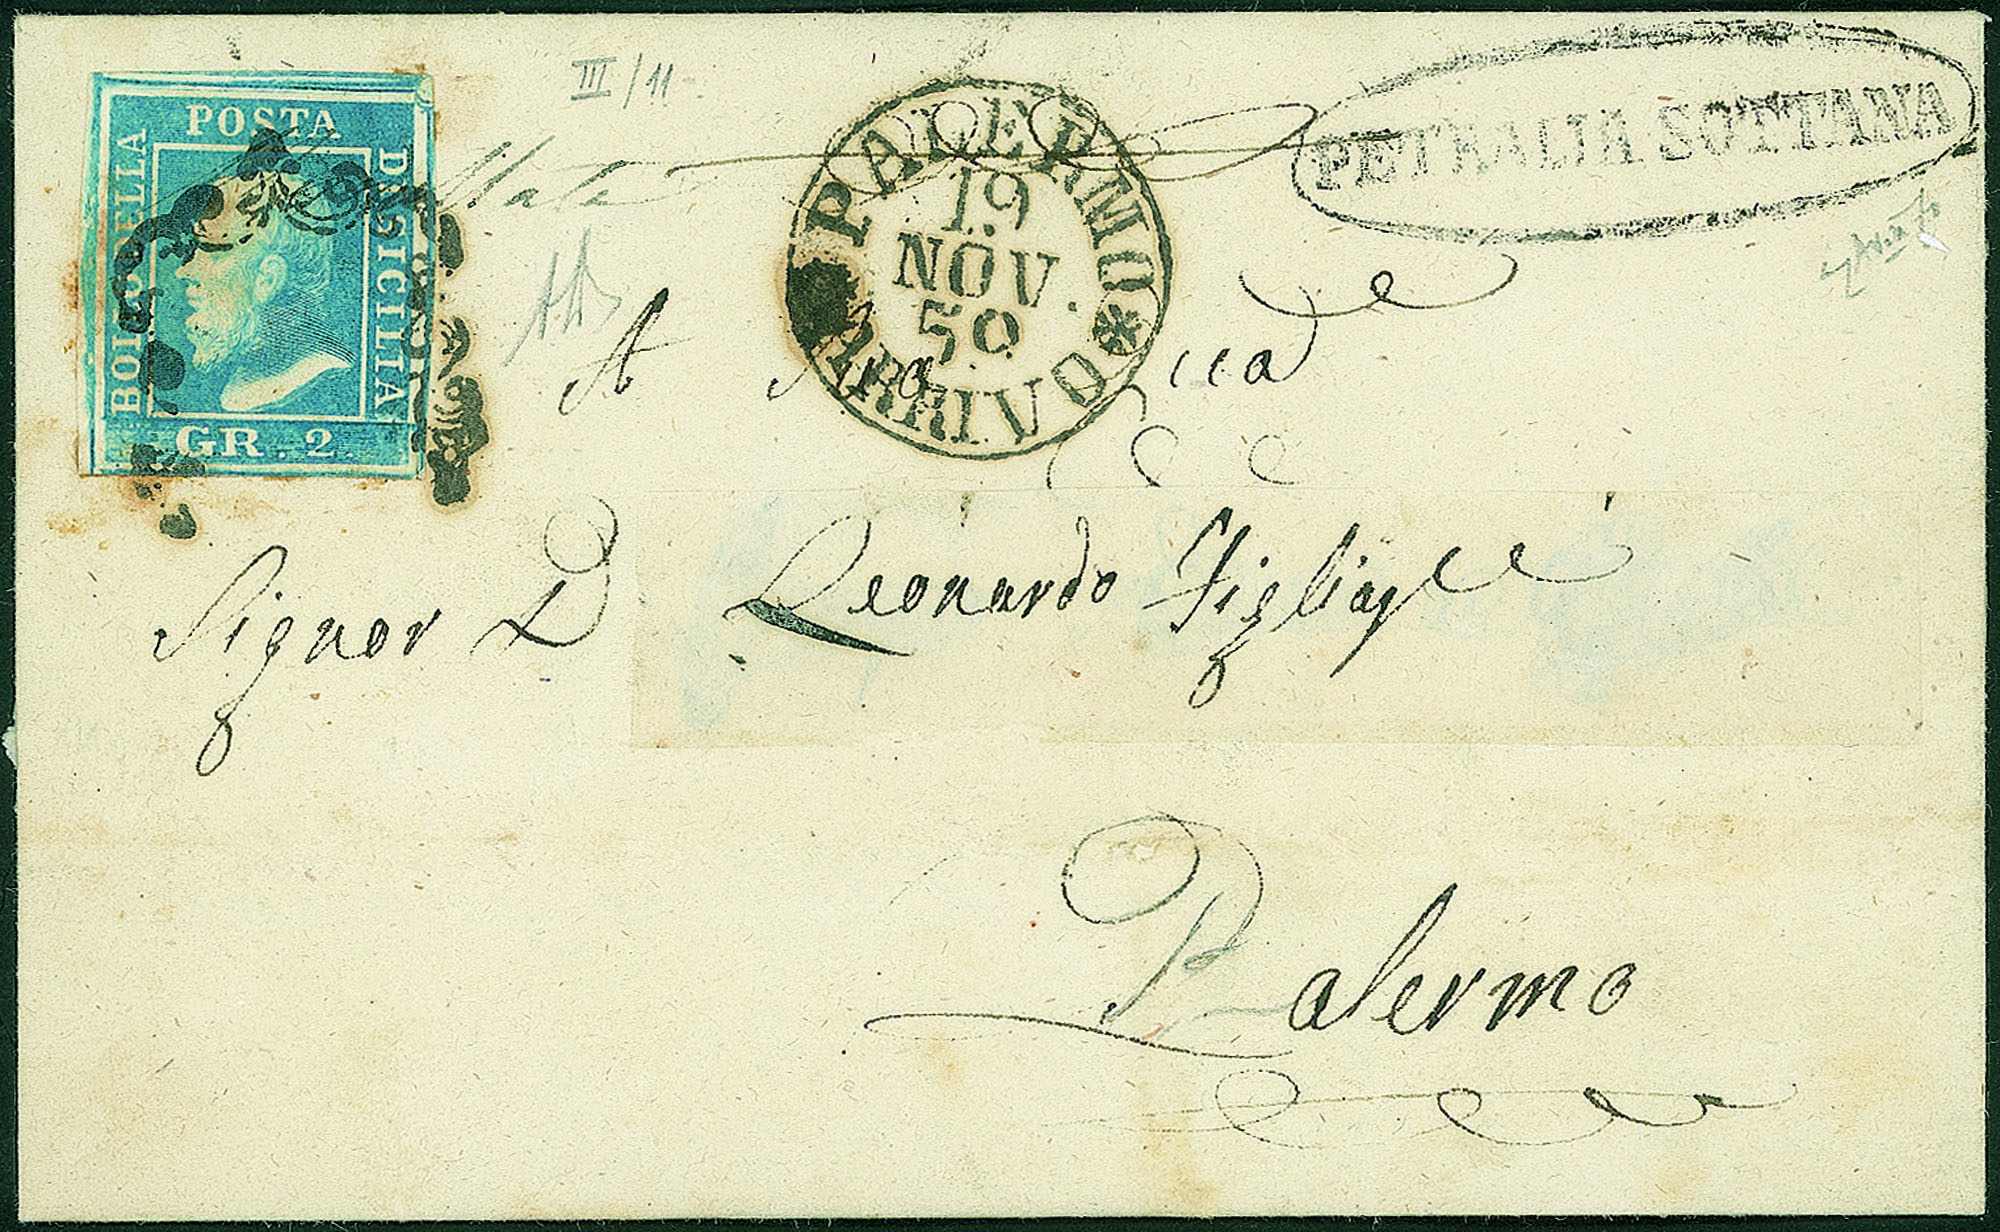 POSTA
BOLLO DELLA
DI SICILIA
GR. 2.
III/11
PALERMO
19
NOV.
50
ARRIVO
PETRALIA SOTTANA
A Sua
Signor D Leonardo
Palermo